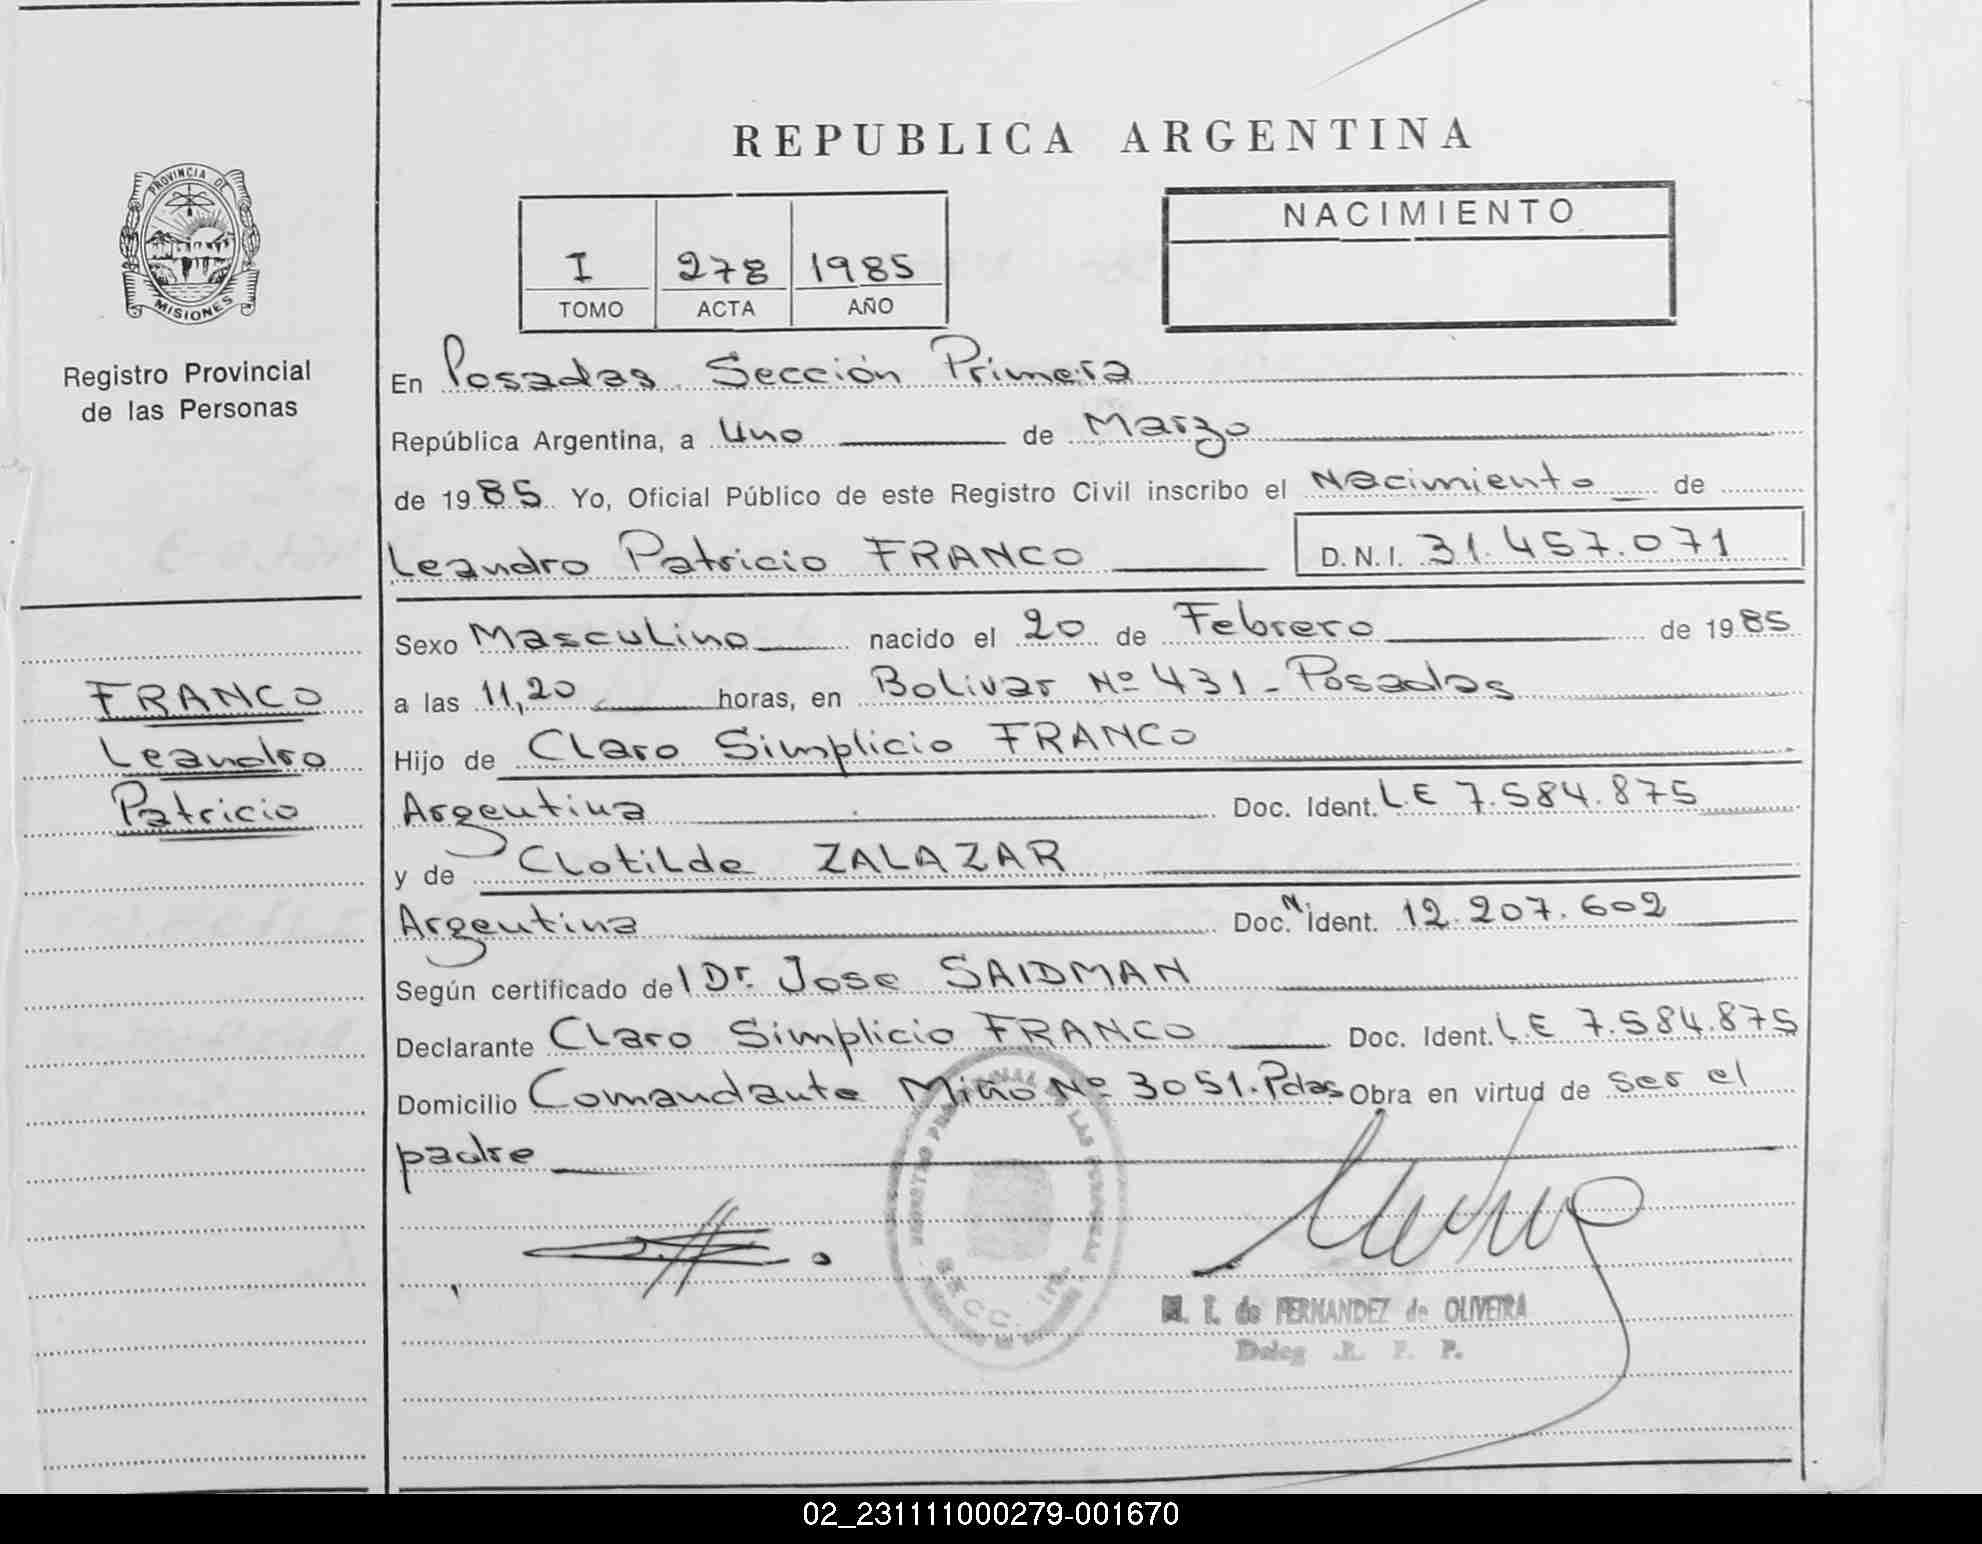 REPUBLICA ARGENTINA
PROVINCIA DE
MISIONES
Registro Provincial
de las Personas
I 278 1985
TOMO ACTA AÑO
NACIMIENTO
En Posadas Sección Primera
República Argentina, a Uno de Marzo
de 1985 Yo, Oficial Público de este Registro Civil inscribo el Nacimiento de
Leandro Patricio FRANCO D.N.I. 31.457.071
Sexo Masculino nacido el 20 de Febrero de 1985
a las 11,20 horas, en Bolivar Nº 431 - Posadas
Hijo de Claro Simplicio FRANCO
Argentina Doc. Ident. L.E 7.584.875
y de Clotilde ZALAZAR
Argentina Doc. N. Ident. 12.207.602
Según certificado del Dr. Jose SAIDMAN
Declarante Claro Simplicio FRANCO Doc. Ident. L.E 7.584.875
Domicilio Comandante Miño Nº 3051. Pdas Obra en virtud de ser el
padre
FRANCO
Leandro
Patricio
de FERNANDEZ de OLIVEIRA
Deleg R. P. P.
02_231111000279-001670